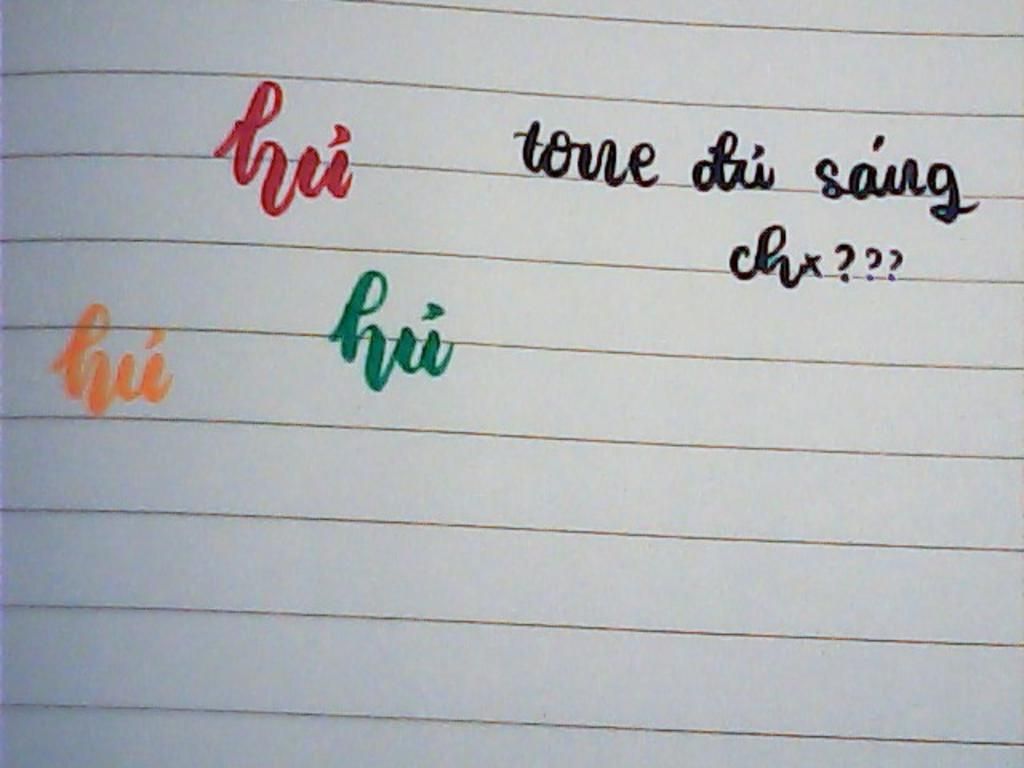 hú
tone đủ sáng
chx???
hú
hú